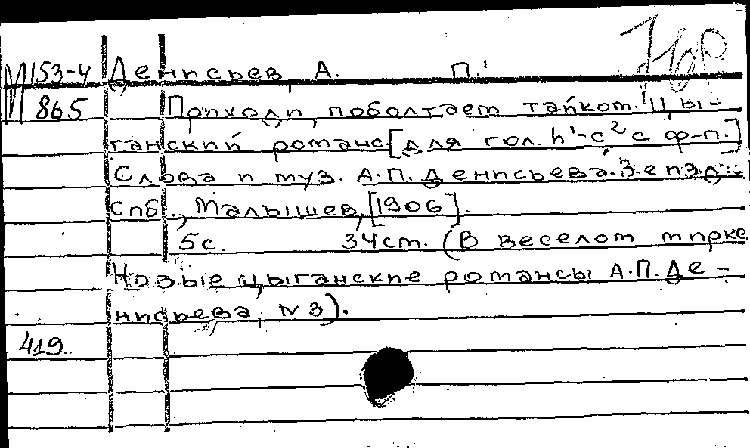 М 153-4 Денисьев, А. П.
М 865 Приходи, поболтаем тайком. Цы-
ганский романс [для гол. h¹-c² с ф-п.]
Слова и муз. А.П. Денисьева. 3-е изд.
Спб., Малышев, [1906].
5с. 34см. (В веселом мирке
Новые цыганские романсы А.П. Де-
нисьева, №3).
419.